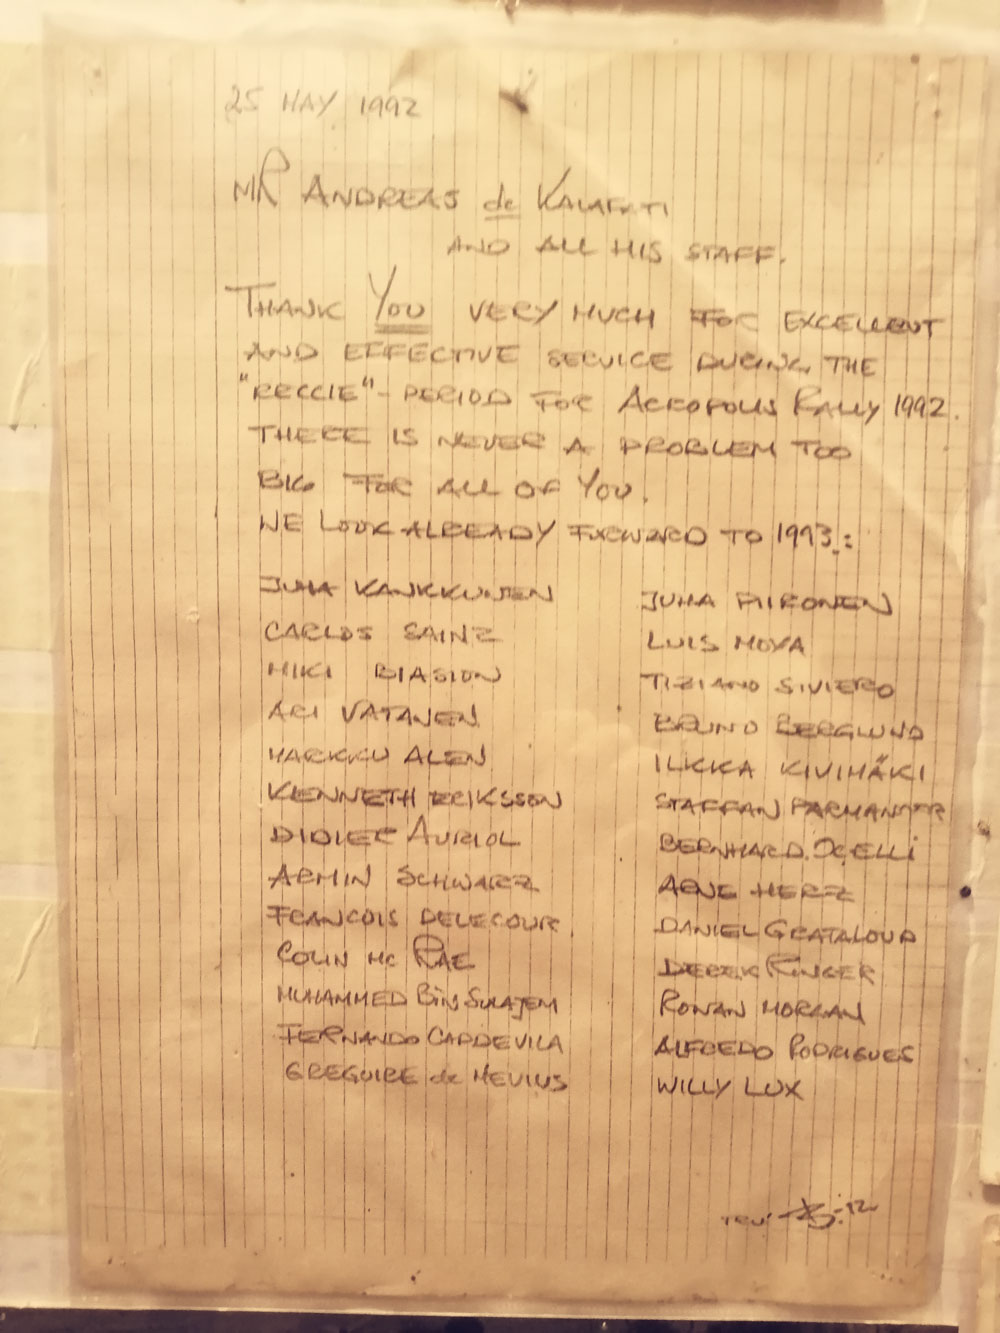 25 MAY 1992
MR ANDREAS de KALAFATI
AND ALL HIS STAFF.
THANK YOU VERY MUCH FOR EXCELLENT
AND EFFECTIVE SERVICE DURING THE
"RECCIE"-PERIOD FOR ACROPOLIS RALLY 1992.
THERE IS NEVER A PROBLEM TOO
BIG FOR ALL OF YOU.
WE LOOK ALREADY FORWARD TO 1993.:
JUHA KANKKUNEN JUHA PIIRONEN
CARLOS SAINZ LUIS MOYA
MIKI BIASION TIZIANO SIVIERO
ARI VATANEN BRUNO BERGLUND
MARKKU ALEN ILKKA KIVIMÄKI
KENNETH ERIKSSON STAFFAN PARMANDER
DIDIER AURIOL BERNHARD OCELLI
ARMIN SCHWARZ ARNE HERTZ
FRANCOIS DELECOUR. DANIEL GRATALOUP
COLIN Mc RAE DEREK RINGER
MUHAMMED BIN SULAJEM RONAN MORGAN
FERNANDO CAPDEVILA ALFREDO RODRIGUES
GREGOIRE de MEVIUS WILLY LUX